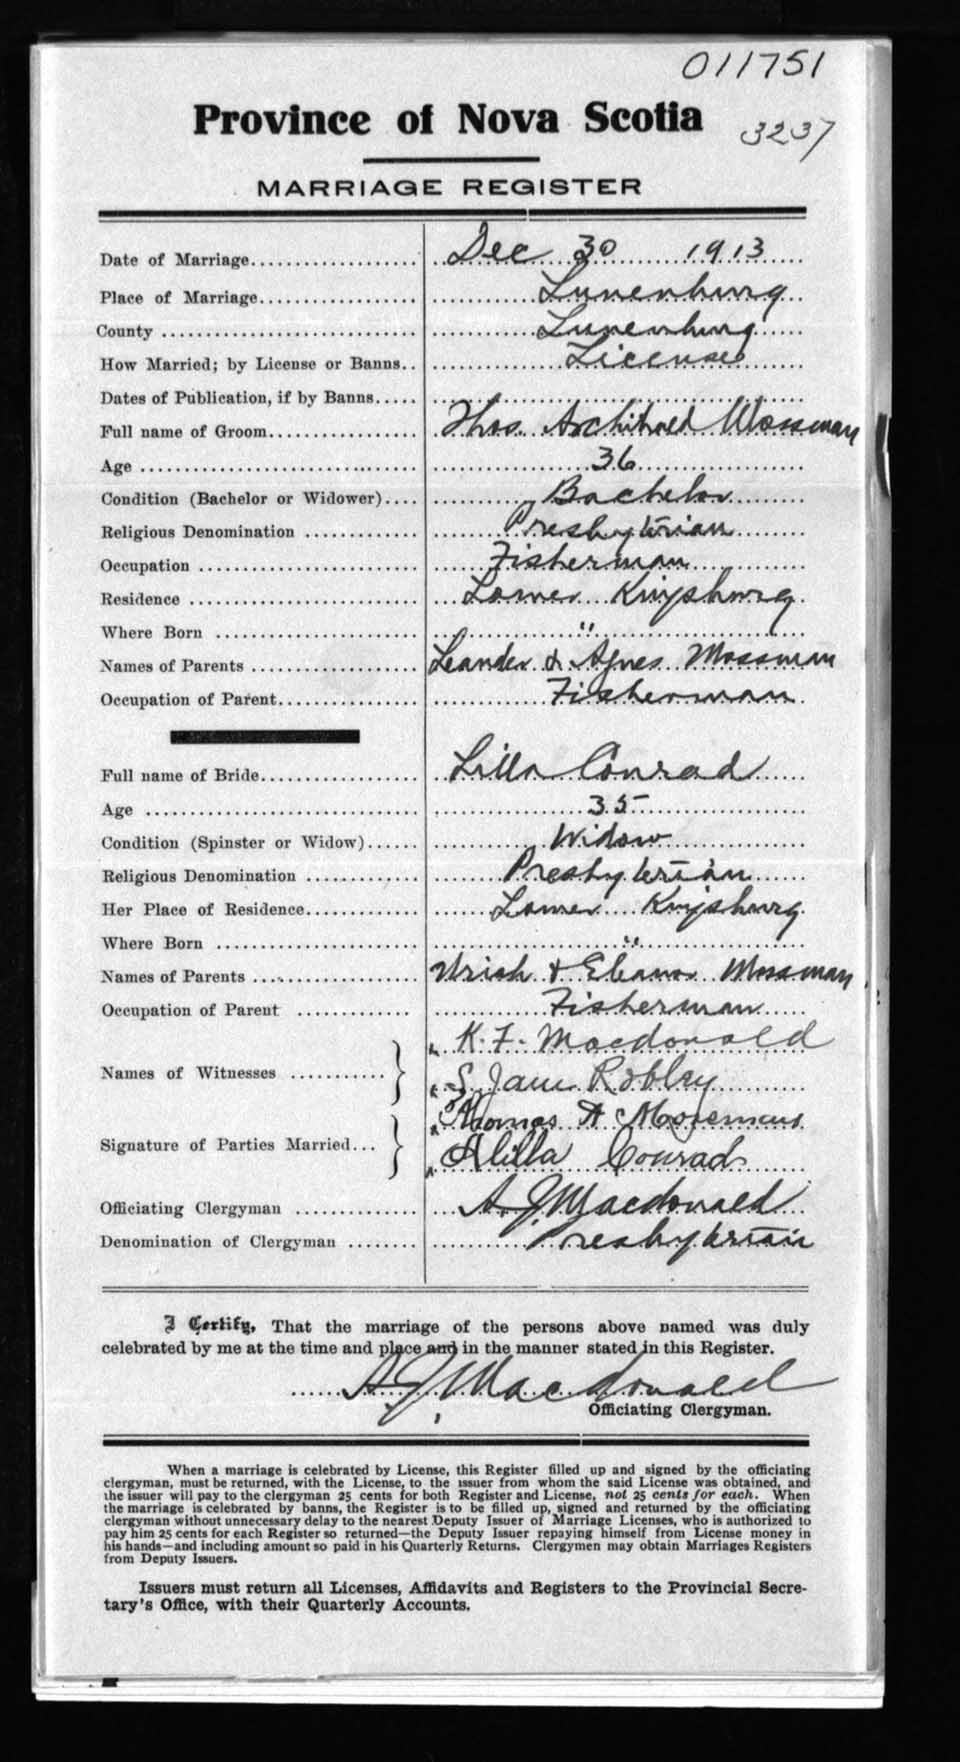 011751
Province of Nova Scotia 3237
MARRIAGE REGISTER
Date of Marriage.................... Dec 30 1913
Place of Marriage.................. Lunenburg
County ............................. Lunenburg
How Married; by License or Banns.. License
Dates of Publication, if by Banns.....
Full name of Groom................. Thos. Archibald Mossman
Age ............................... 36
Condition (Bachelor or Widower).... Bachelor
Religious Denomination ............. Presbyterian
Occupation ......................... Fisherman
Residence .......................... Lower Kingsburg
Where Born ........................ "
Names of Parents ................... Leander & Agnes Mossman
Occupation of Parent................ Fisherman
Full name of Bride.................. Lilla Conrad
Age ............................... 35
Condition (Spinster or Widow)...... Widow
Religious Denomination ............. Presbyterian
Her Place of Residence............. Lower Kingsburg
Where Born ........................ "
Names of Parents ................... Uriah & Eleanor Mossman
Occupation of Parent ............. Fisherman
K. F. Macdonald
Names of Witnesses ............
Jane Robley
Thomas A
Signature of Parties Married...
Alilla Conrad
Officiating Clergyman .............. A. J. Macdonald
Denomination of Clergyman ........ Presbyterian
I Certify, That the marriage of the persons above named was duly
celebrated by me at the time and place and in the manner stated in this Register.
A. J. Macdonald
Officiating Clergyman.
When a marriage is celebrated by License, this Register filled up and signed by the officiating
clergyman, must be returned, with the License, to the issuer from whom the said License was obtained, and
the issuer will pay to the clergyman 25 cents for both Register and License, not 25 cents for each. When
the marriage is celebrated by banns, the Register is to be filled up, signed and returned by the officiating
clergyman without unnecessary delay to the nearest Deputy Issuer of Marriage Licenses, who is authorized to
pay him 25 cents for each Register so returned—the Deputy Issuer repaying himself from License money in
his hands—and including amount so paid in his Quarterly Returns. Clergymen may obtain Marriages Registers
from Deputy Issuers.
Issuers must return all Licenses, Affidavits and Registers to the Provincial Secre-
tary's Office, with their Quarterly Accounts.